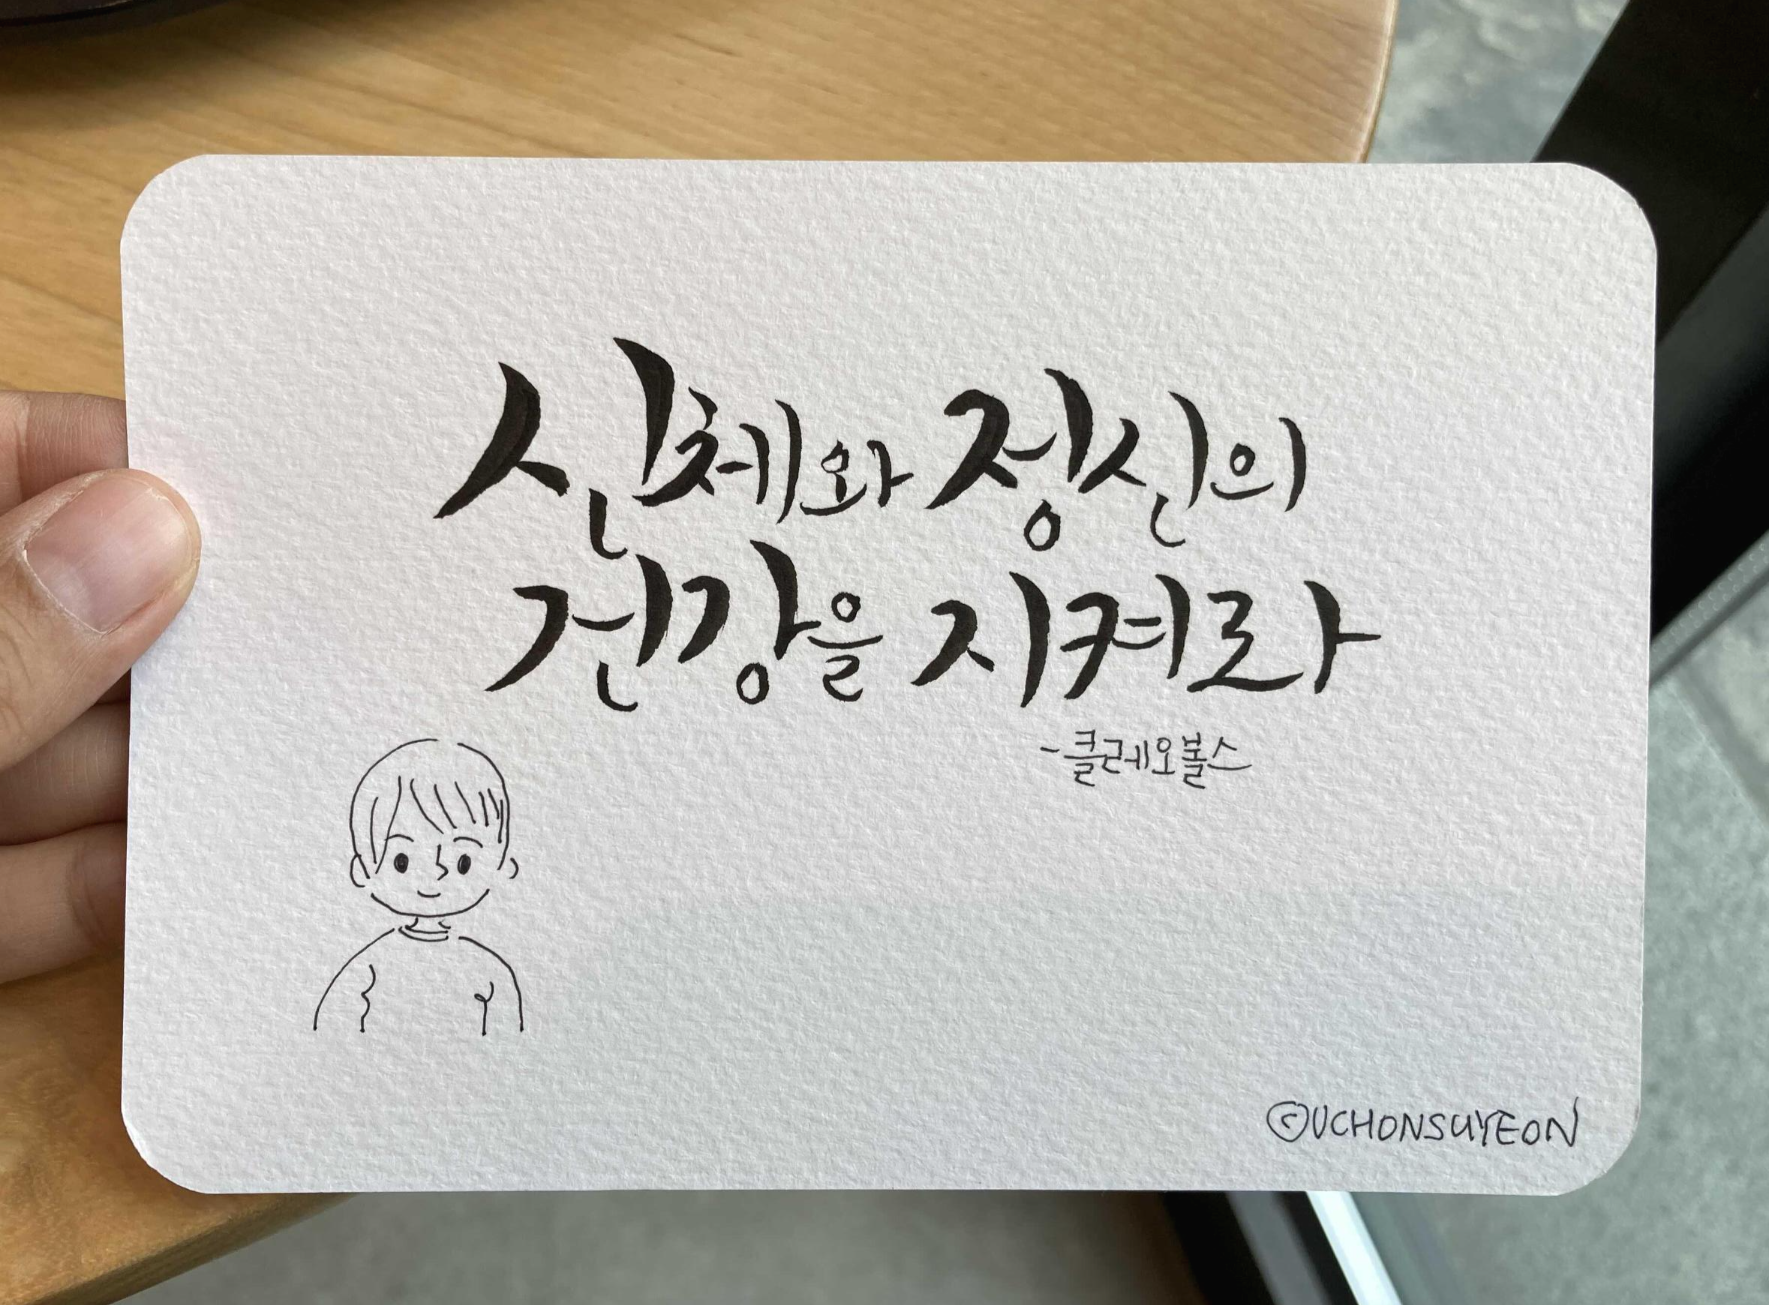 신체와 정신의
건강을 지켜라
-클레오볼스
©UCHONSUYEON